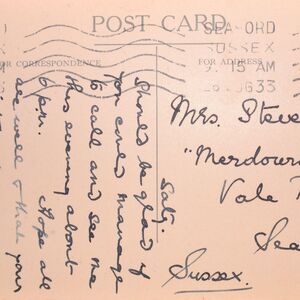 POST CARD
FOR CORRESPONDENCE
FOR ADDRESS
SEAFORD
SUSSEX
9. 15 AM
26 AUG 33
Saty.
Should be glad if
you could manage
to call and see me
this evening about
6 p.m. Hope all
are well & that your
Mrs. Steve
"Merdour
Vale
Sea
Sussex.